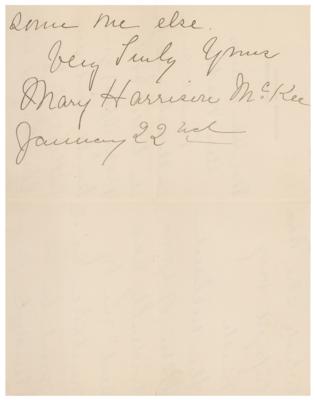 some one else.
Very Truly Yours
Mary Harrison McKee
January 22nd